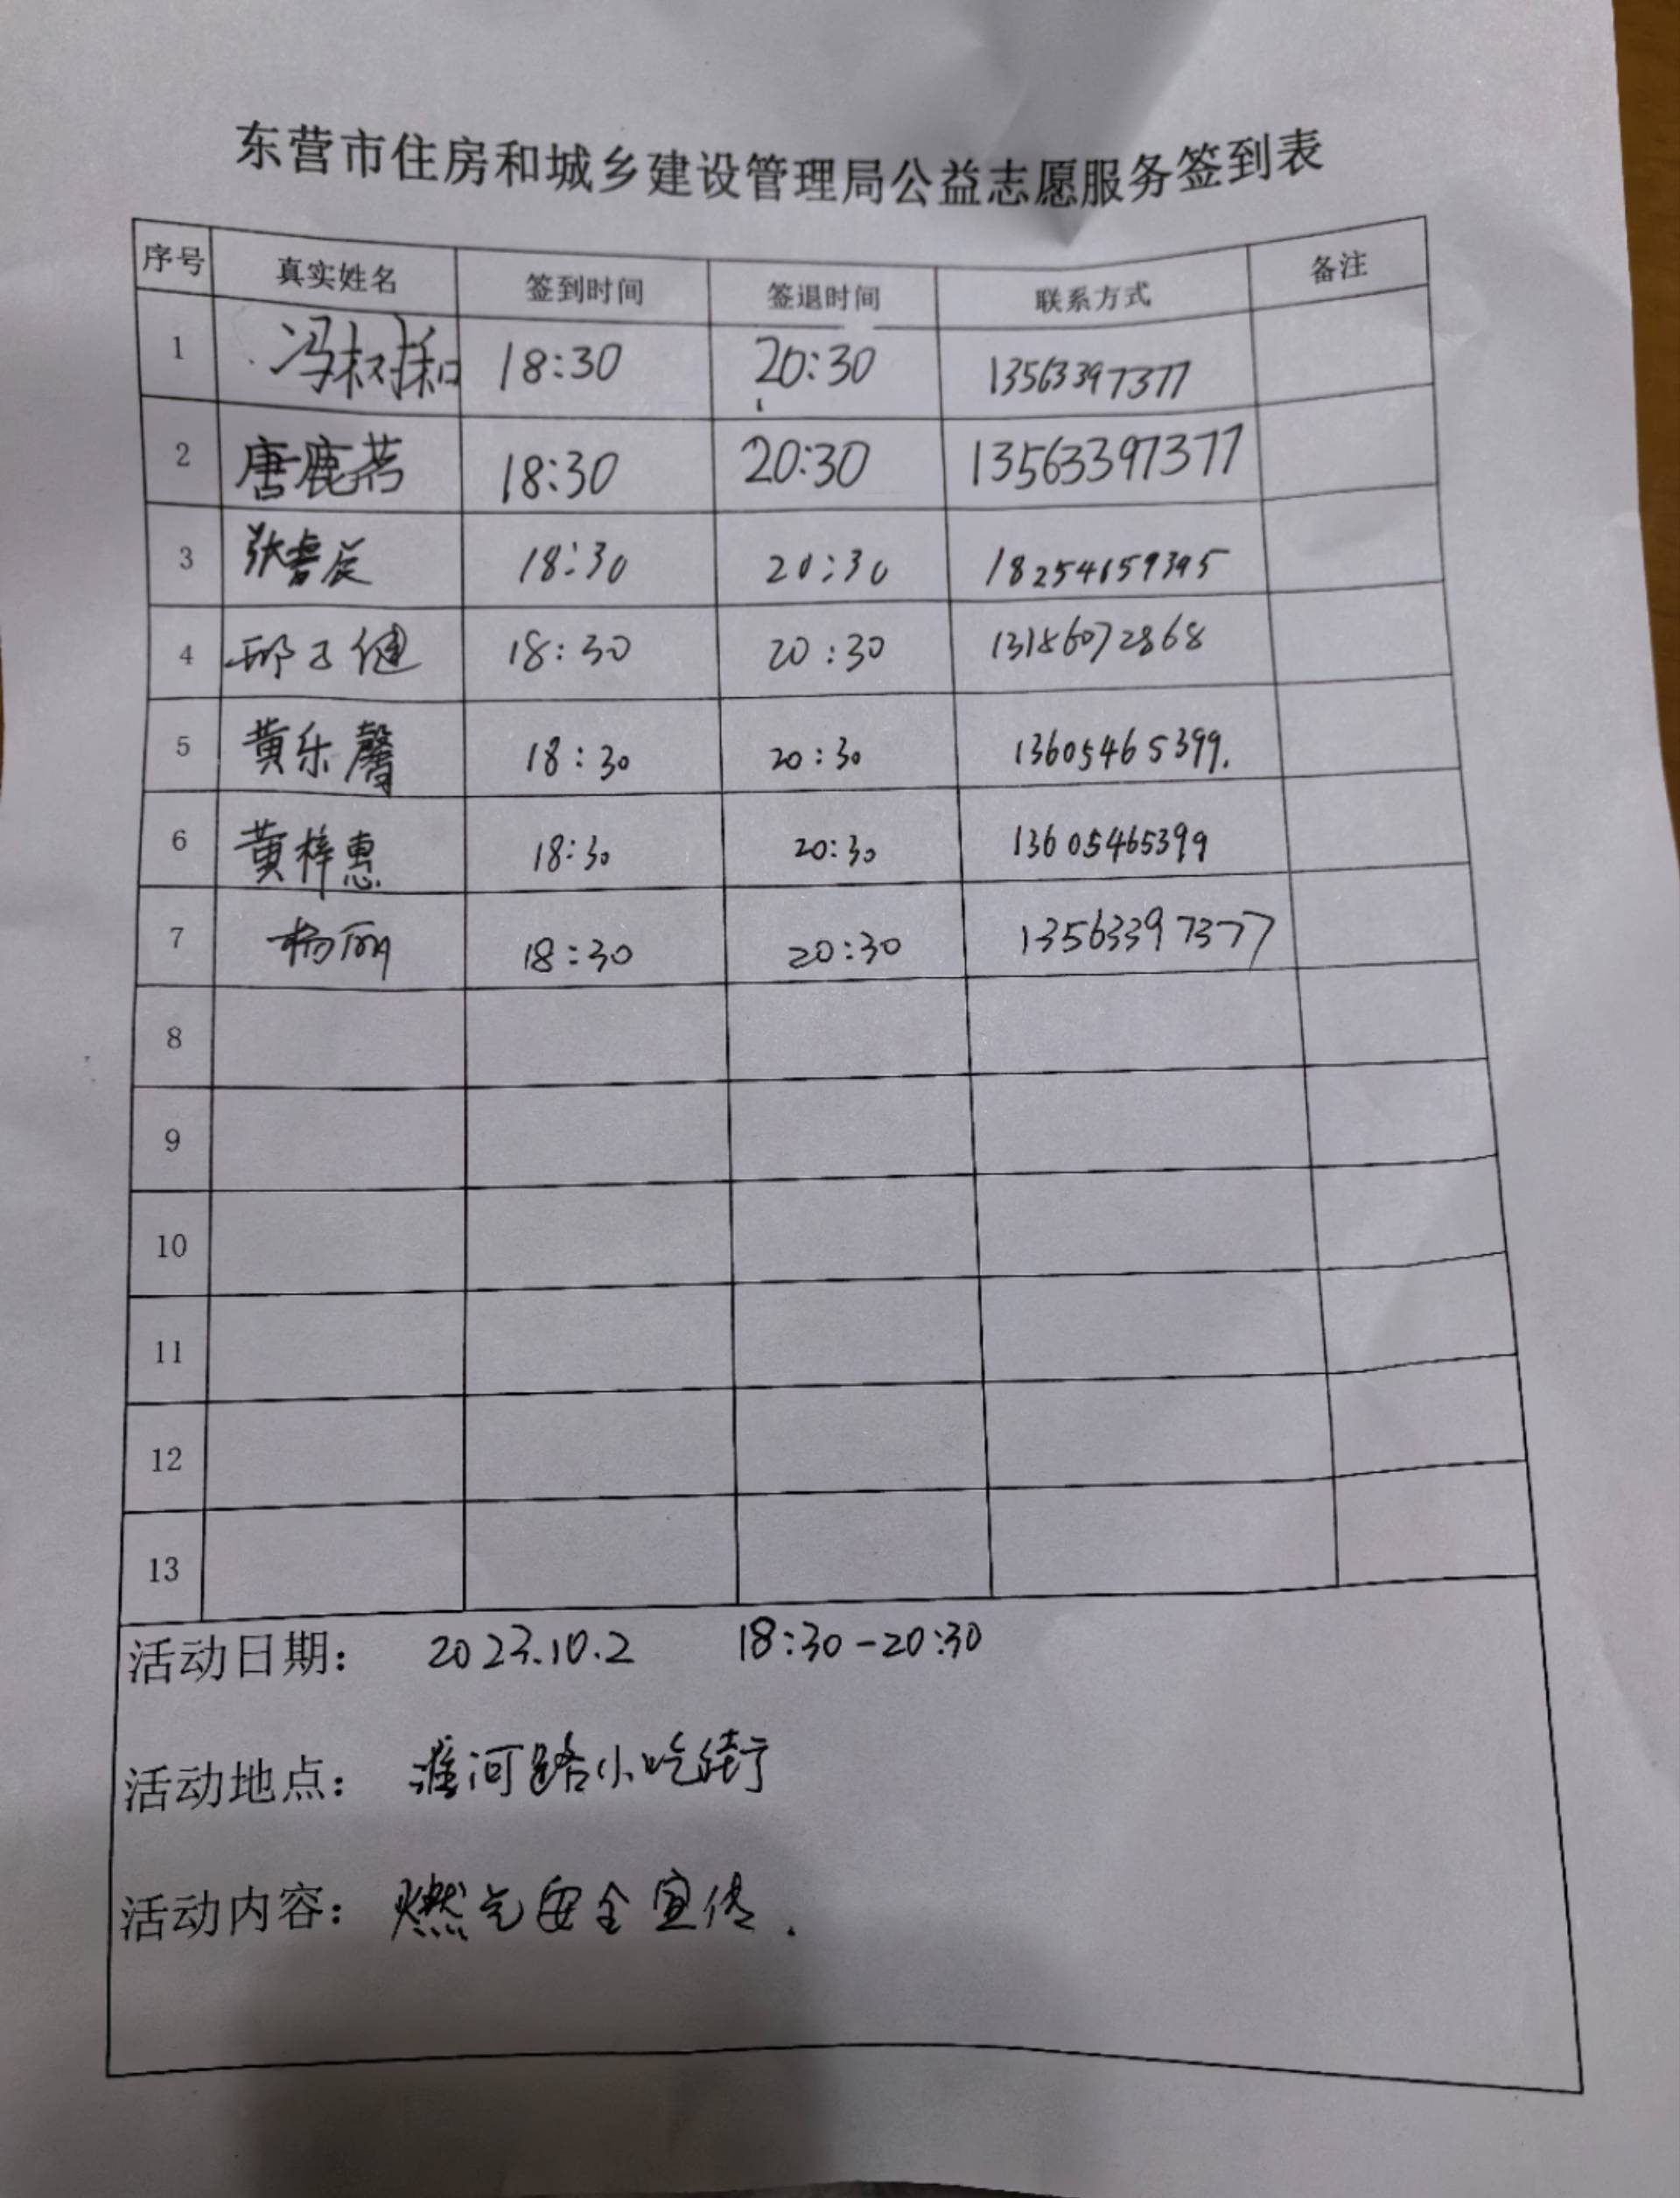 东营市住房和城乡建设管理局公益志愿服务签到表
序号 真实姓名 签到时间 签退时间 联系方式 备注
1 冯 18:30 20:30 13563397377
2 唐鹿茗 18:30 20:30 13563397377
3 张睿辰 18:30 20:30 18254659395
4 邱子健 18:30 20:30 13186072868
5 黄乐馨 18:30 20:30 13605465399.
6 黄梓惠 18:30 20:30 13605465399
7 杨丽 18:30 20:30 13563397377
8
9
10
11
12
13
活动日期: 2023.10.2 18:30-20:30
活动地点: 淮河路小吃街
活动内容: 燃气安全宣传.